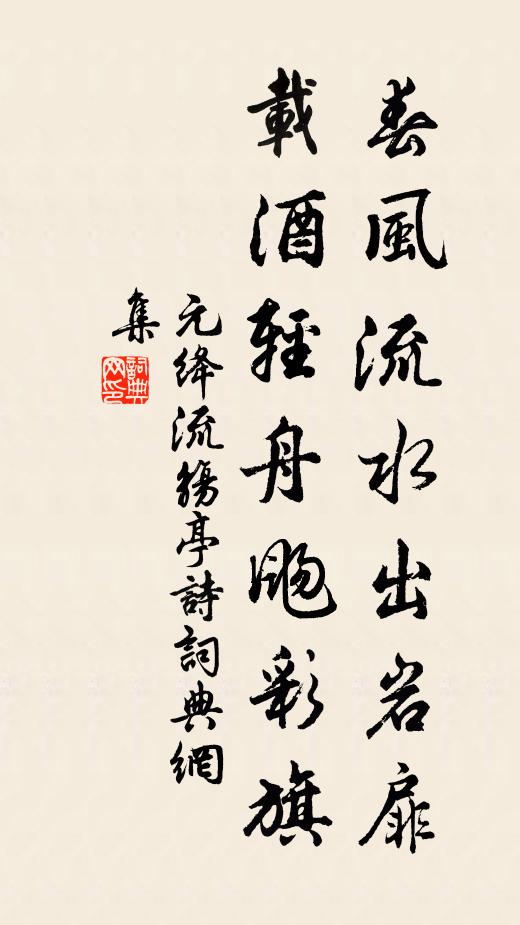 春風流水出岩扉
載酒輕舟颺彩旗
元绛流觴亭詩詞典網
集
詞典
网印